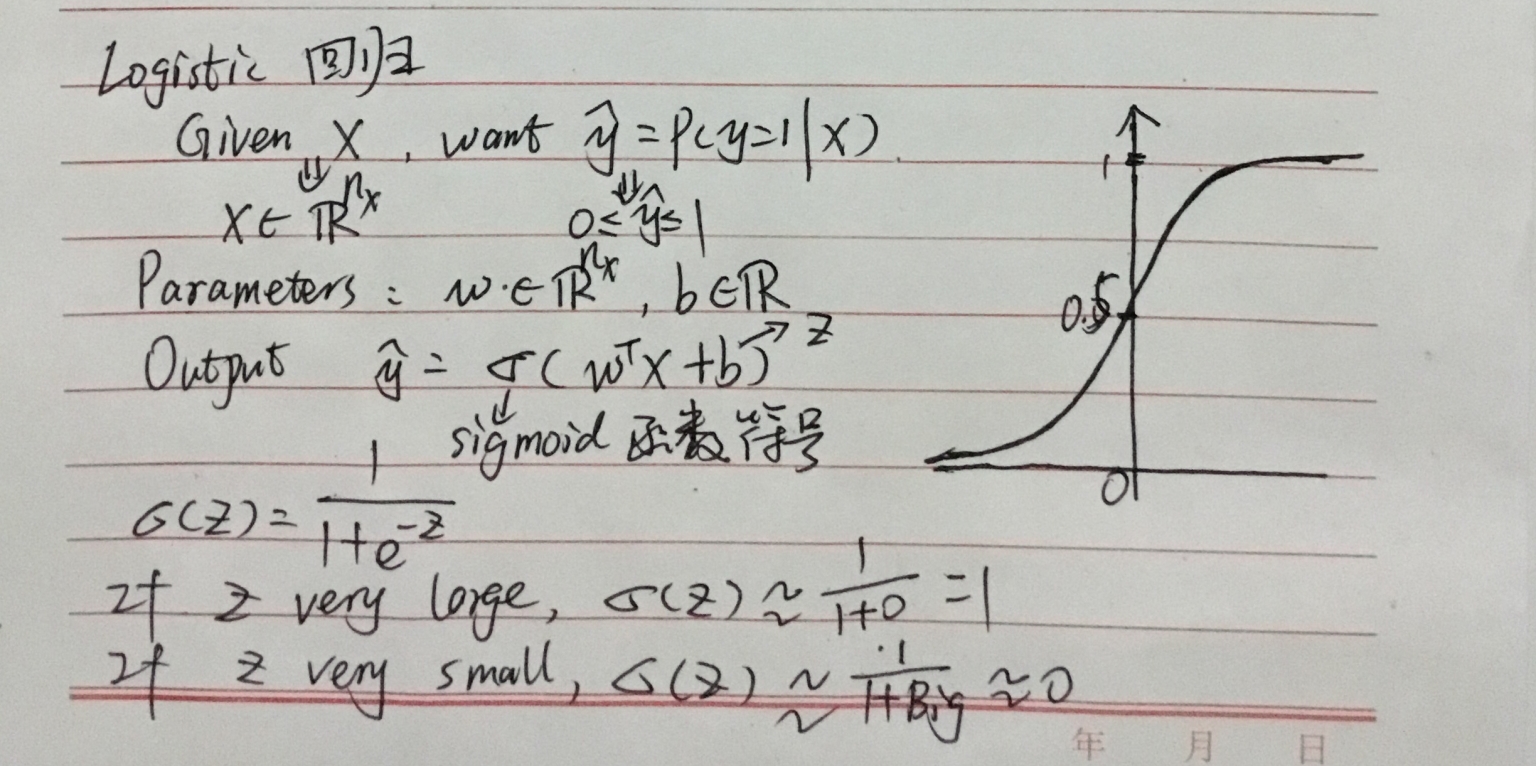 Logistic 回归
Given X , want ŷ = P(y=1|X)
⇓ ⇓
X ∈ ℝⁿˣ 0 ≤ ŷ ≤ 1
Parameters : w ∈ ℝⁿˣ , b ∈ ℝ
Output ŷ = σ( wᵀX + b ) → z
↓
sigmoid 函数符号
σ(z) = 1/(1+e^{-z})
If z very large, σ(z) ≈ 1/(1+0) = 1
If z very small, σ(z) ≈ 1/(1+Big) ≈ 0
1
0.5
0
年 月 日